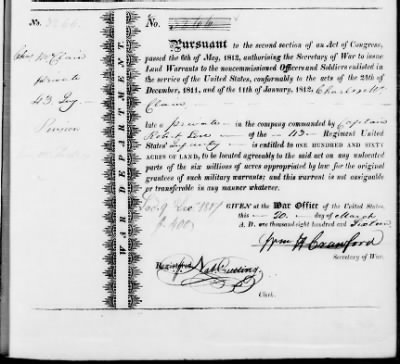 No.
No.
PURSUANT to the second section of an Act of Congress,
passed the 6th of May, 1812, authorising the Secretary of War to issue
Land Warrants to the noncommissioned Officers and Soldiers enlisted in
the service of the United States, conformably to the acts of the 24th of
December, 1811, and of the 11th of January, 1812, Charles Mc
Clain
late a private in the company commanded by Captain
Robert of the 43 Regiment United
States' Infantry is entitled to ONE HUNDRED AND SIXTY
ACRES OF LAND, to be located agreeably to the said act on any unlocated
parts of the six millions of acres appropriated by law for the original
grantees of such military warrants; and this warrant is not assignable
or transferable in any manner whatever.
GIVEN at the War Office of the United States,
this 20 day of March
A. D. one thousand eight hundred and Sixteen
Wm H Crawford
Secretary of War.
Registered Nat Cutting
Clerk.
WAR DEPARTMENT.
Chas McClain
private
43 Inf